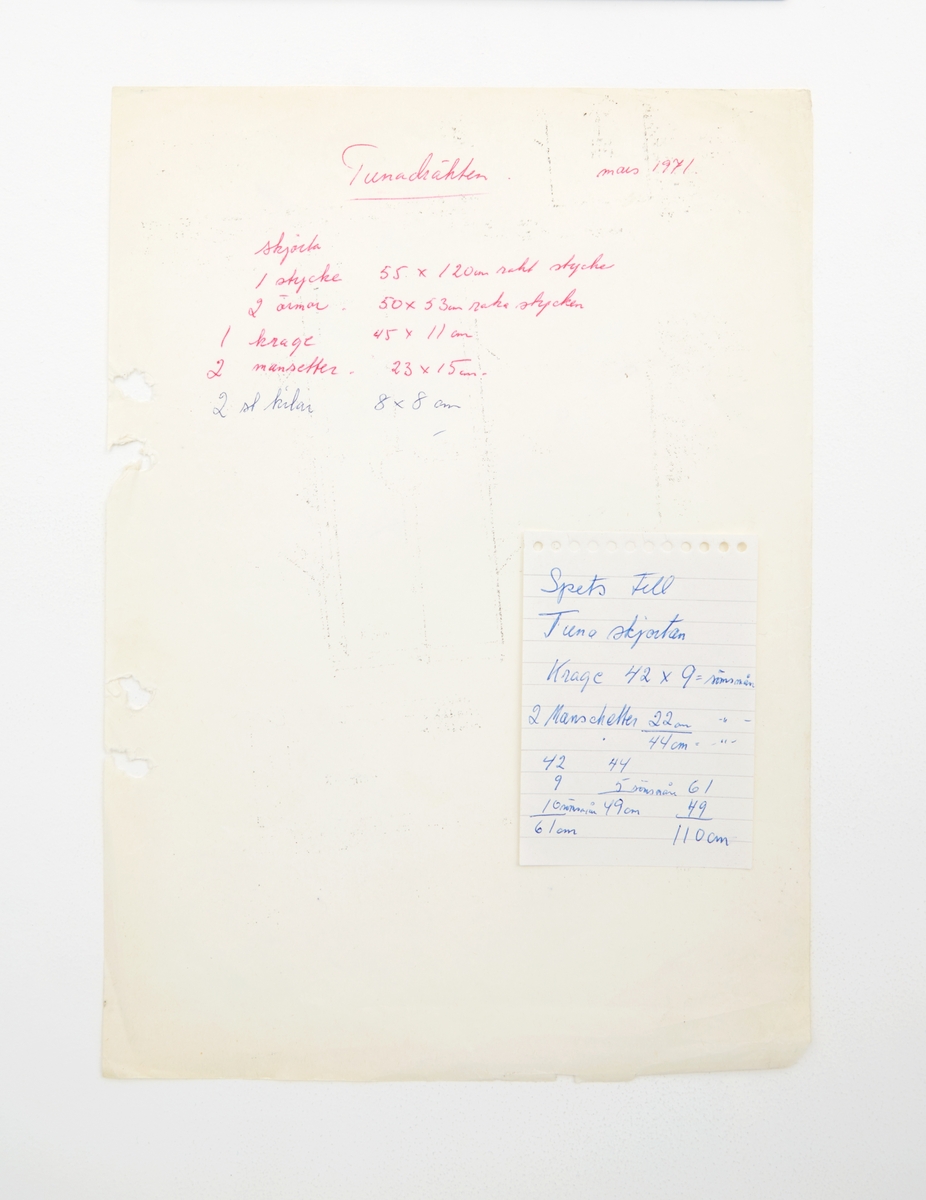 Tunadräkten. mars 1971.
skjorta
1 stycke 55 x 120cm rakt stycke
2 ärmar. 50 x 53cm raka stycken
1 krage 45 x 11 cm
2 mansetter. 23 x 15cm.
2 st kilar 8 x 8 cm
Spets till
Tuna skjortan
Krage 42 x 9 = sömsmån
2 Manschetter 22cm -"-
44cm - -"-
42 44
9 5 sömsmån 61
10 sömsmån 49cm 49
61cm 110cm